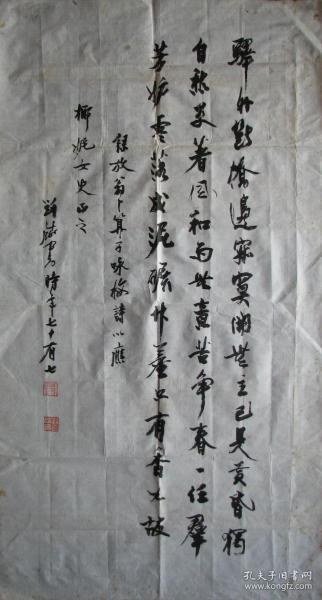 驛外斷橋邊寂寞開無主已是黃昏獨
自愁更著風和雨無意苦爭春一任羣
芳妒零落成泥碾作塵只有香如故
錄放翁卜算子咏梅詩以應
女史正之
書時年七十有七
孔夫子旧书网
www.kongfz.com